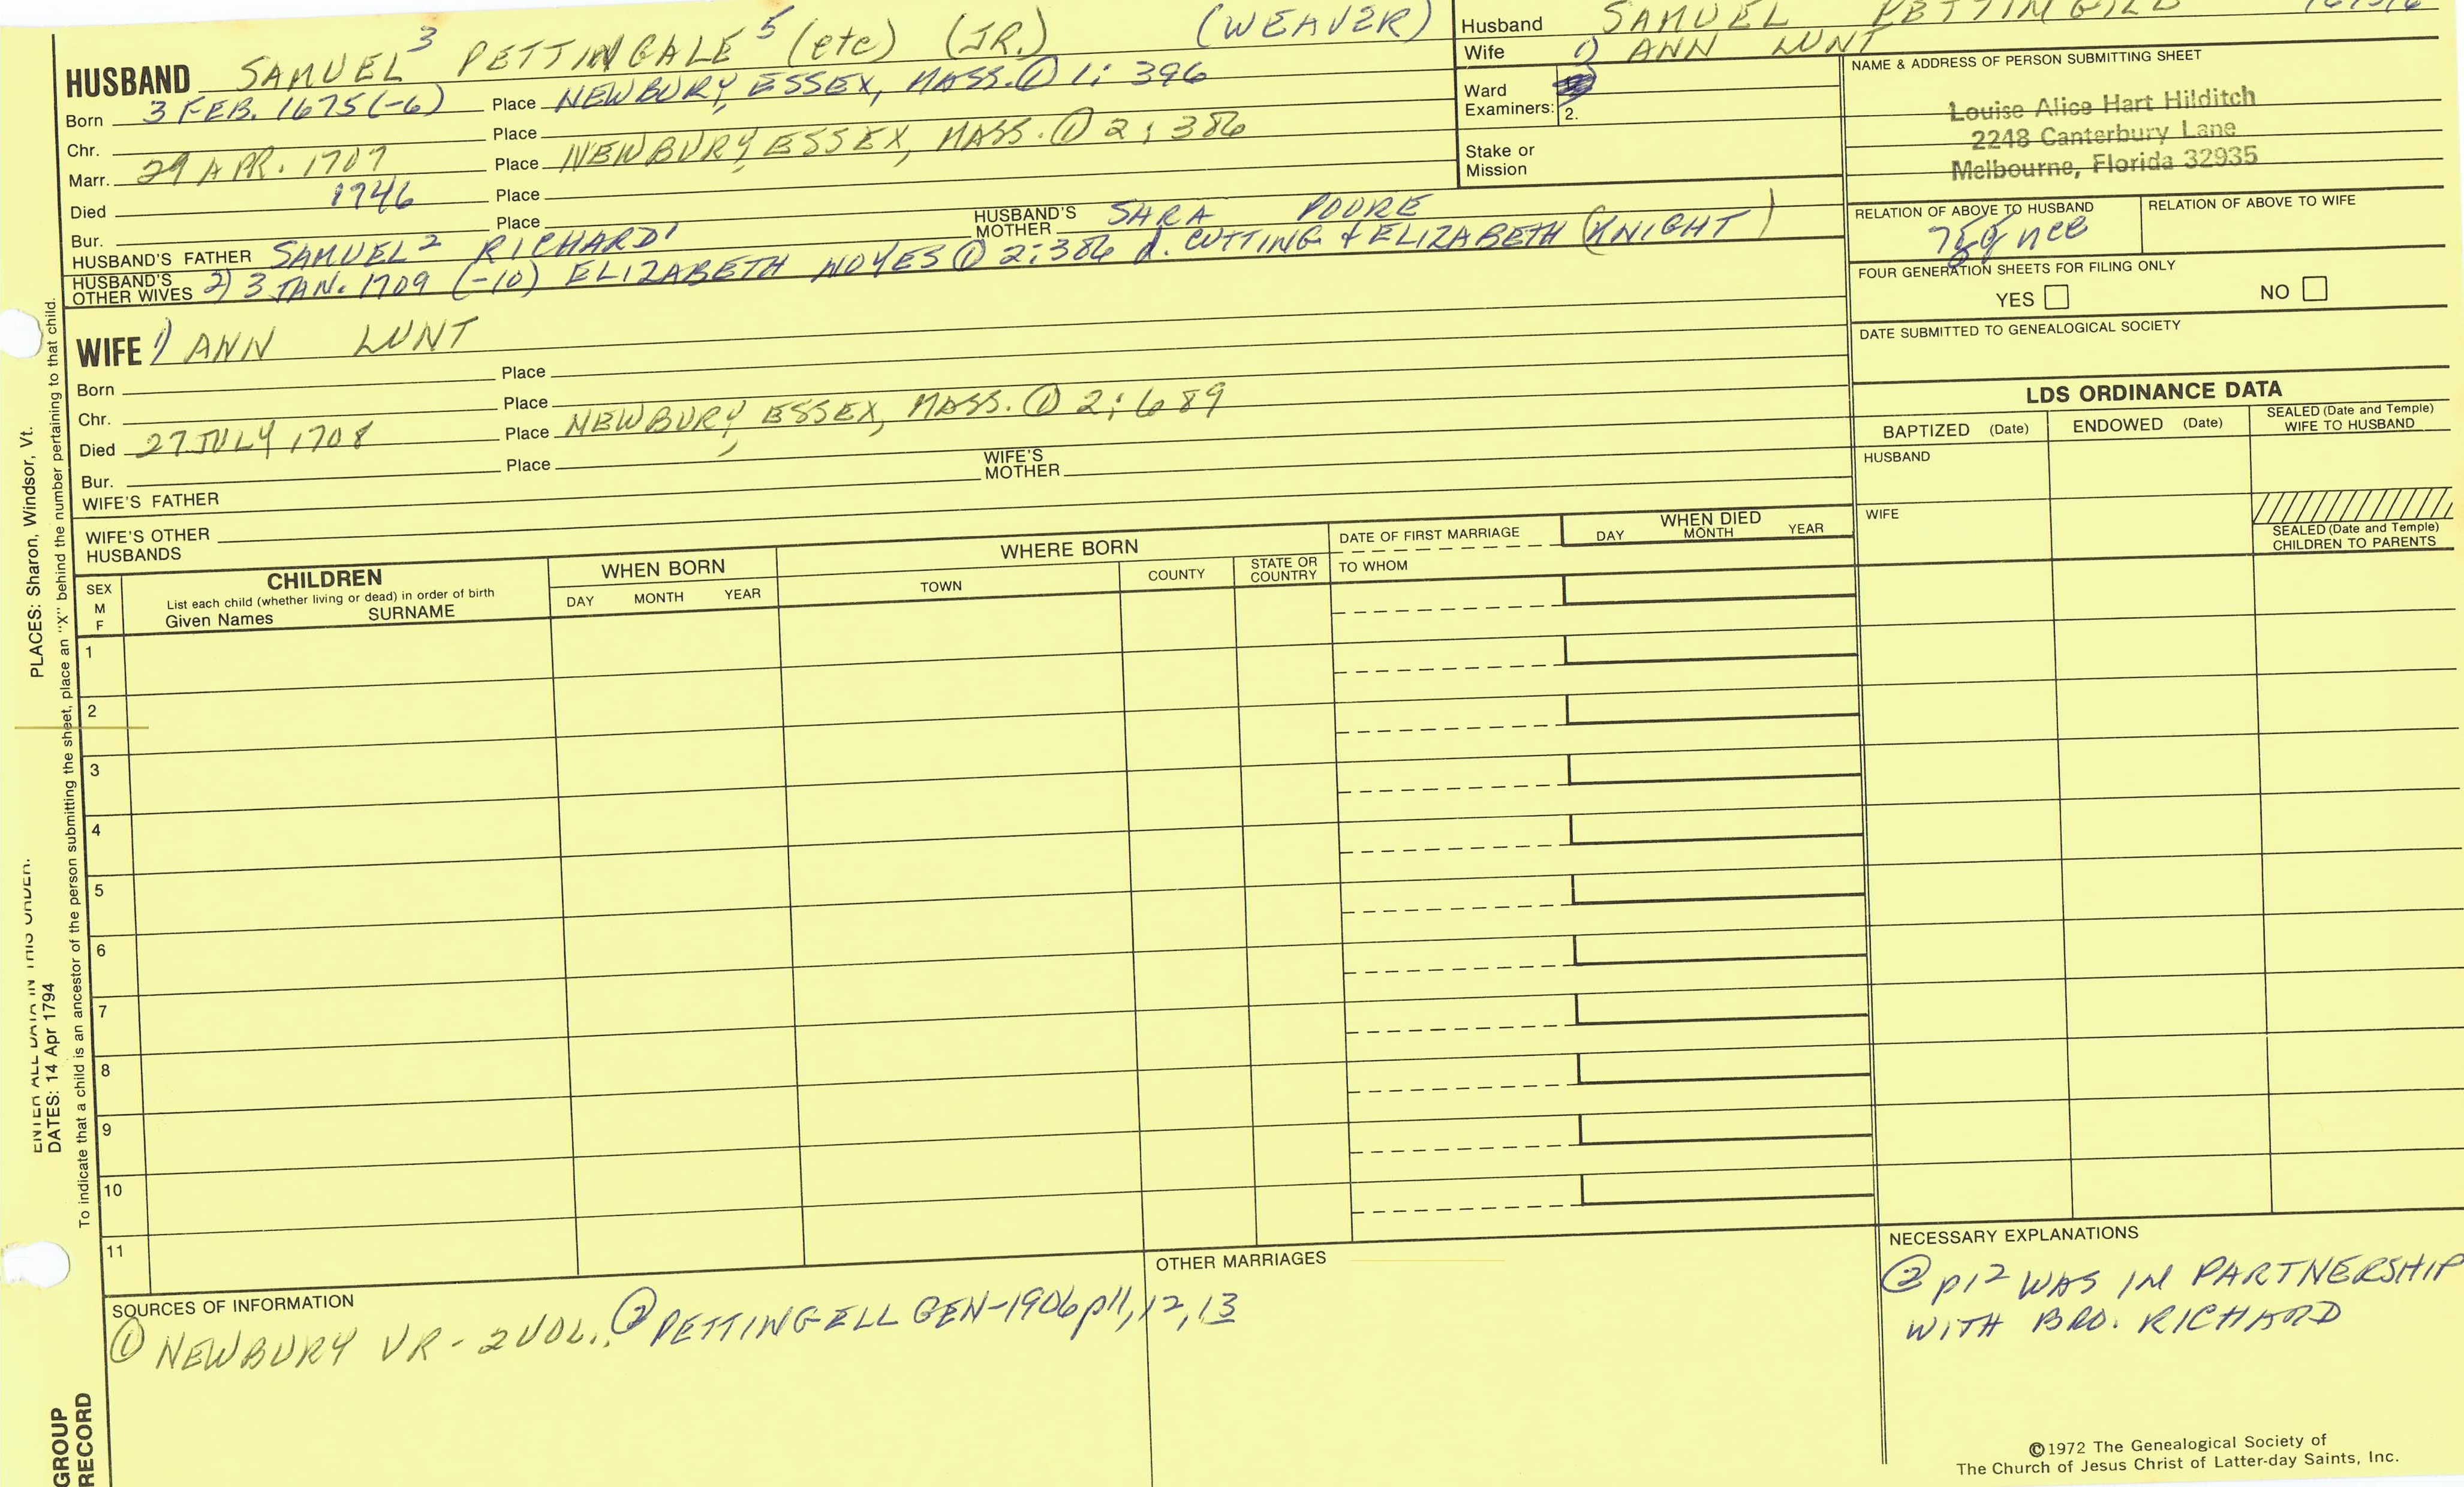 SAMUEL 3 PETTINGALE 5 (etc) (JR.) (WEAVER)
HUSBAND
Born 3 FEB. 1675(-6) Place NEWBURY, ESSEX, MASS. ① 1: 396
Chr. Place
Marr. 29 APR. 1707 Place NEWBURY, ESSEX, MASS. ① 2: 386
Died 1746 Place
Bur. Place
HUSBAND'S FATHER SAMUEL 2 RICHARD 1 HUSBAND'S MOTHER SARA POORE
HUSBAND'S OTHER WIVES 2) 3 JAN. 1709 (-10) ELIZABETH NOYES ① 2:386 d. CUTTING & ELIZABETH (KNIGHT)
Husband SAMUEL
Wife 1) ANN LUNT
Ward
Examiners: 2.
Stake or
Mission
NAME & ADDRESS OF PERSON SUBMITTING SHEET
Louise Alice Hart Hilditch
2248 Canterbury Lane
Melbourne, Florida 32935
RELATION OF ABOVE TO HUSBAND RELATION OF ABOVE TO WIFE
FOUR GENERATION SHEETS FOR FILING ONLY
YES NO
DATE SUBMITTED TO GENEALOGICAL SOCIETY
WIFE 1) ANN LUNT
Born Place
Chr. Place
Died 27 JULY 1708 Place NEWBURY, ESSEX, MASS. ① 2: 689
Bur. Place
WIFE'S FATHER WIFE'S MOTHER
WIFE'S OTHER
HUSBANDS
LDS ORDINANCE DATA
BAPTIZED (Date) ENDOWED (Date) SEALED (Date and Temple) WIFE TO HUSBAND
HUSBAND
WIFE
SEALED (Date and Temple)
CHILDREN TO PARENTS
SEX
M
F
CHILDREN
List each child (whether living or dead) in order of birth
Given Names SURNAME
WHEN BORN
DAY MONTH YEAR
WHERE BORN
TOWN COUNTY STATE OR COUNTRY
DATE OF FIRST MARRIAGE
TO WHOM
WHEN DIED
DAY MONTH YEAR
1
2
3
4
5
6
7
8
9
10
11
SOURCES OF INFORMATION
① NEWBURY VR - 2 VOL., ② PETTINGELL GEN-1906 p11, 12, 13
OTHER MARRIAGES
NECESSARY EXPLANATIONS
② p12 WAS IN PARTNERSHIP
WITH BRO. RICHARD
©1972 The Genealogical Society of
The Church of Jesus Christ of Latter-day Saints, Inc.
PLACES: Sharon, Windsor, Vt.
ENTER ALL DATA IN THIS ORDER:
DATES: 14 Apr 1794
To indicate that a child is an ancestor of the person submitting the sheet, place an "X" behind the number pertaining to that child.
GROUP
RECORD